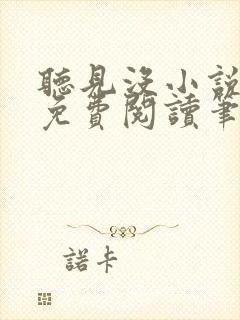 聽見沒小説
免費閱讀筆
諾卡